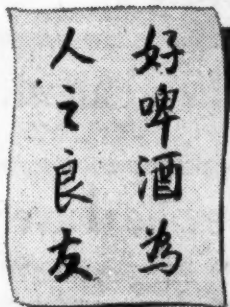 好啤酒為
人之良友